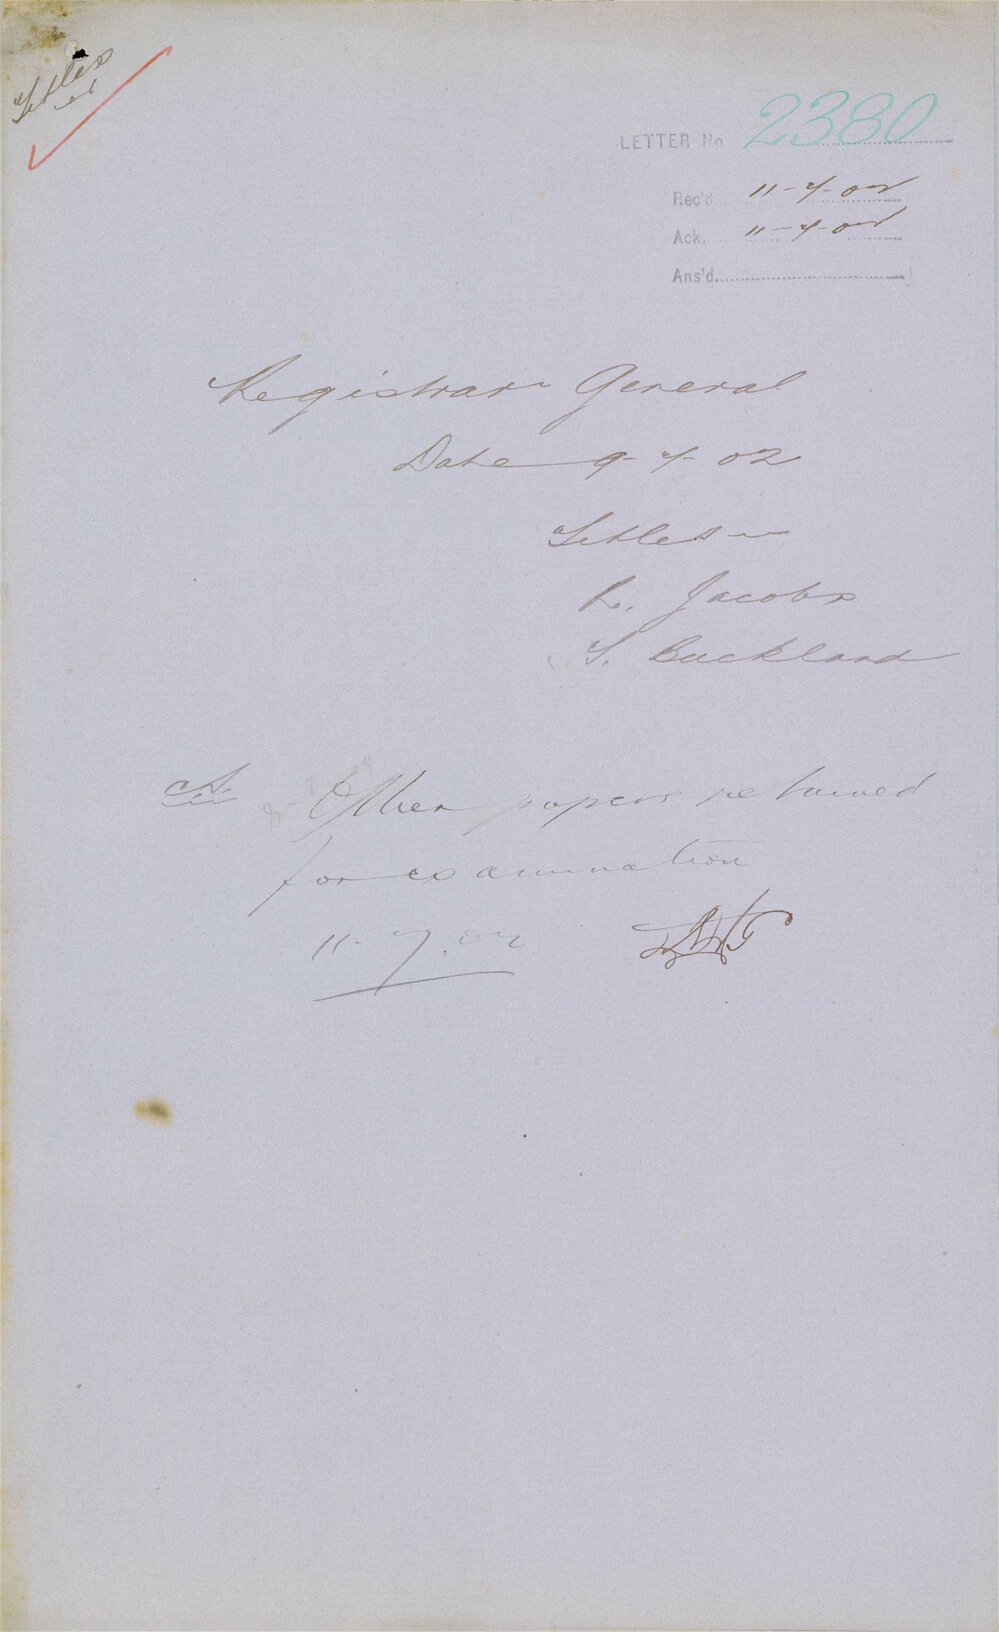 Titles
LETTER No 2380
Rec'd. 11-7-02
Ack. 11-7-02
Ans'd.
Registrar General
Date 9-7-02
Titles
R. Jacobs
S. Buckland
Other papers returned
for examination
11.7.02